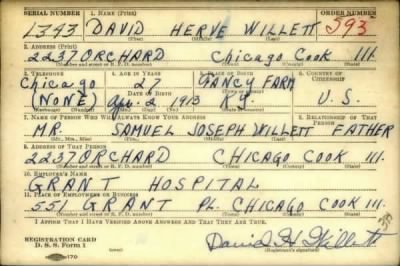 SERIAL NUMBER 1. NAME (Print) ORDER NUMBER
1343 DAVID HERVE WILLETT 593
(First) (Middle) (Last)
2. ADDRESS (Print)
2237 ORCHARD Chicago Cook Ill.
(Number and street or R. F. D. number) (Town) (County) (State)
3. TELEPHONE 4. AGE IN YEARS 5. PLACE OF BIRTH 6. COUNTRY OF CITIZENSHIP
Chicago 27 FARM
(NONE) DATE OF BIRTH 2 1913 KY. U. S.
7. NAME OF PERSON WHO WILL ALWAYS KNOW YOUR ADDRESS 8. RELATIONSHIP OF THAT PERSON
MR. SAMUEL JOSEPH WILLETT FATHER
(Mr., Mrs., Miss) (First) (Middle) (Last)
9. ADDRESS OF THAT PERSON
2237 ORCHARD CHICAGO COOK Ill.
(Number and street or R. F. D. number) (Town) (County) (State)
10. EMPLOYER'S NAME
GRANT HOSPITAL
11. PLACE OF EMPLOYMENT OR BUSINESS
551 GRANT PL. CHICAGO COOK Ill.
(Number and street or R. F. D. number) (Town) (County) (State)
I AFFIRM THAT I HAVE VERIFIED ABOVE ANSWERS AND THAT THEY ARE TRUE.
REGISTRATION CARD
D. S. S. Form 1 David H Willett
(Registrant's signature)